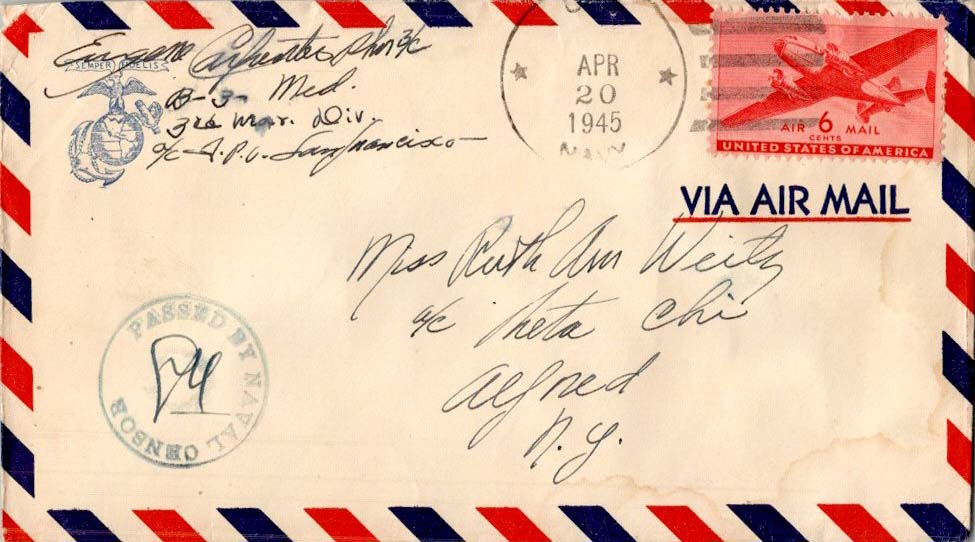 Eugene Cifuentes PhM 3/c
SEMPER FIDELIS
B-3- Med.
3rd Mar. Div.
c/o F.P.O. San Francisco
APR
20
1945
NAVY
AIR 6 MAIL
CENTS
UNITED STATES OF AMERICA
VIA AIR MAIL
Miss Ruth Ann Weitz
c/o Theta Chi
Alfred
N.Y.
PASSED BY NAVAL CENSOR